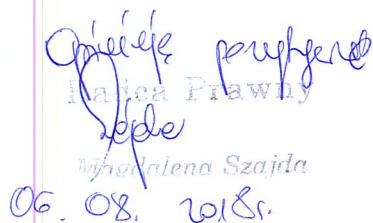 Opiniuję pozytywnie
Radca Prawny
Szajda
Magdalena Szajda
06. 08. 2018r.